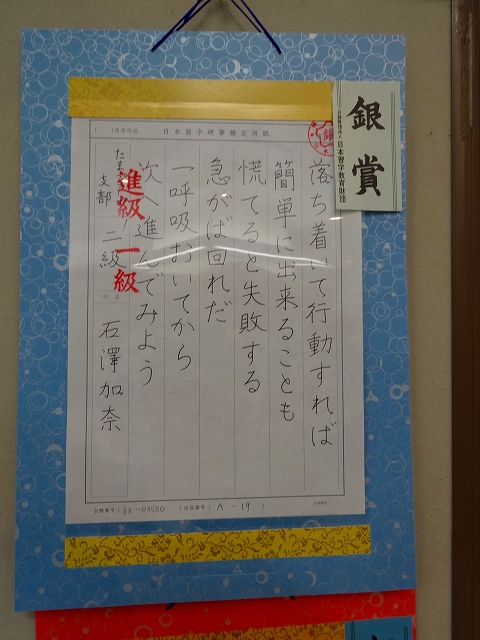 銀賞
公益財団法人 日本習字教育財団
日本習字硬筆検定用紙
銀
落ち着いて行動すれば
簡単に出来ることも
慌てると失敗する
急がば回れだ
一呼吸おいてから
次へ進んでみよう
支部 二級 石澤加奈
進級 一級
(32-03580
A-19